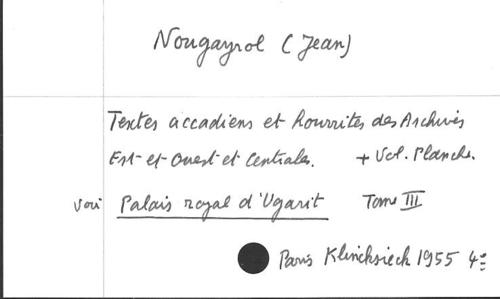 Nougayrol (Jean)
Textes accadiens et hourrites des Archives
Est et Ouest et Centrales. + Vol. Planche.
voir Palais royal d'Ugarit Tome III
Paris Klincksieck 1955 4º